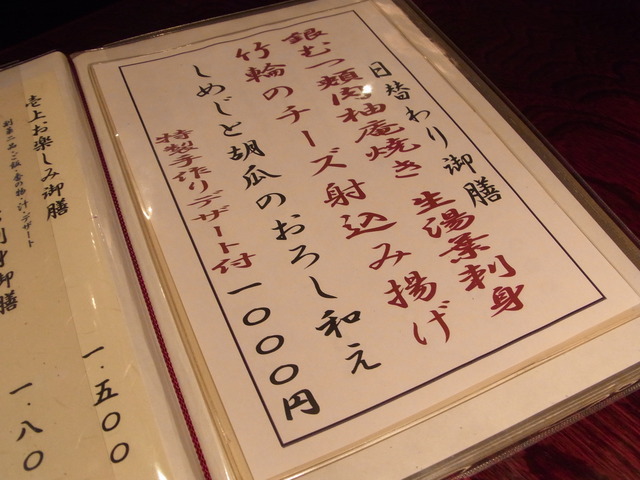 日替わり御膳
銀むつ頬肉柚庵焼き 生湯葉刺身
竹輪のチーズ射込み揚げ
しめじと胡瓜のおろし和え
特製手作りデザート付 一〇〇〇円
壱上、お楽しみ御膳
一、五〇〇
御膳
一、八〇